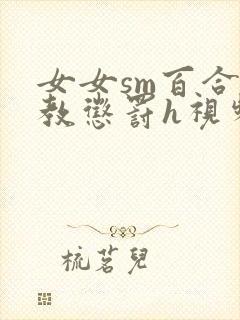 女女sm百合
教懲罰h視
梳茗兒